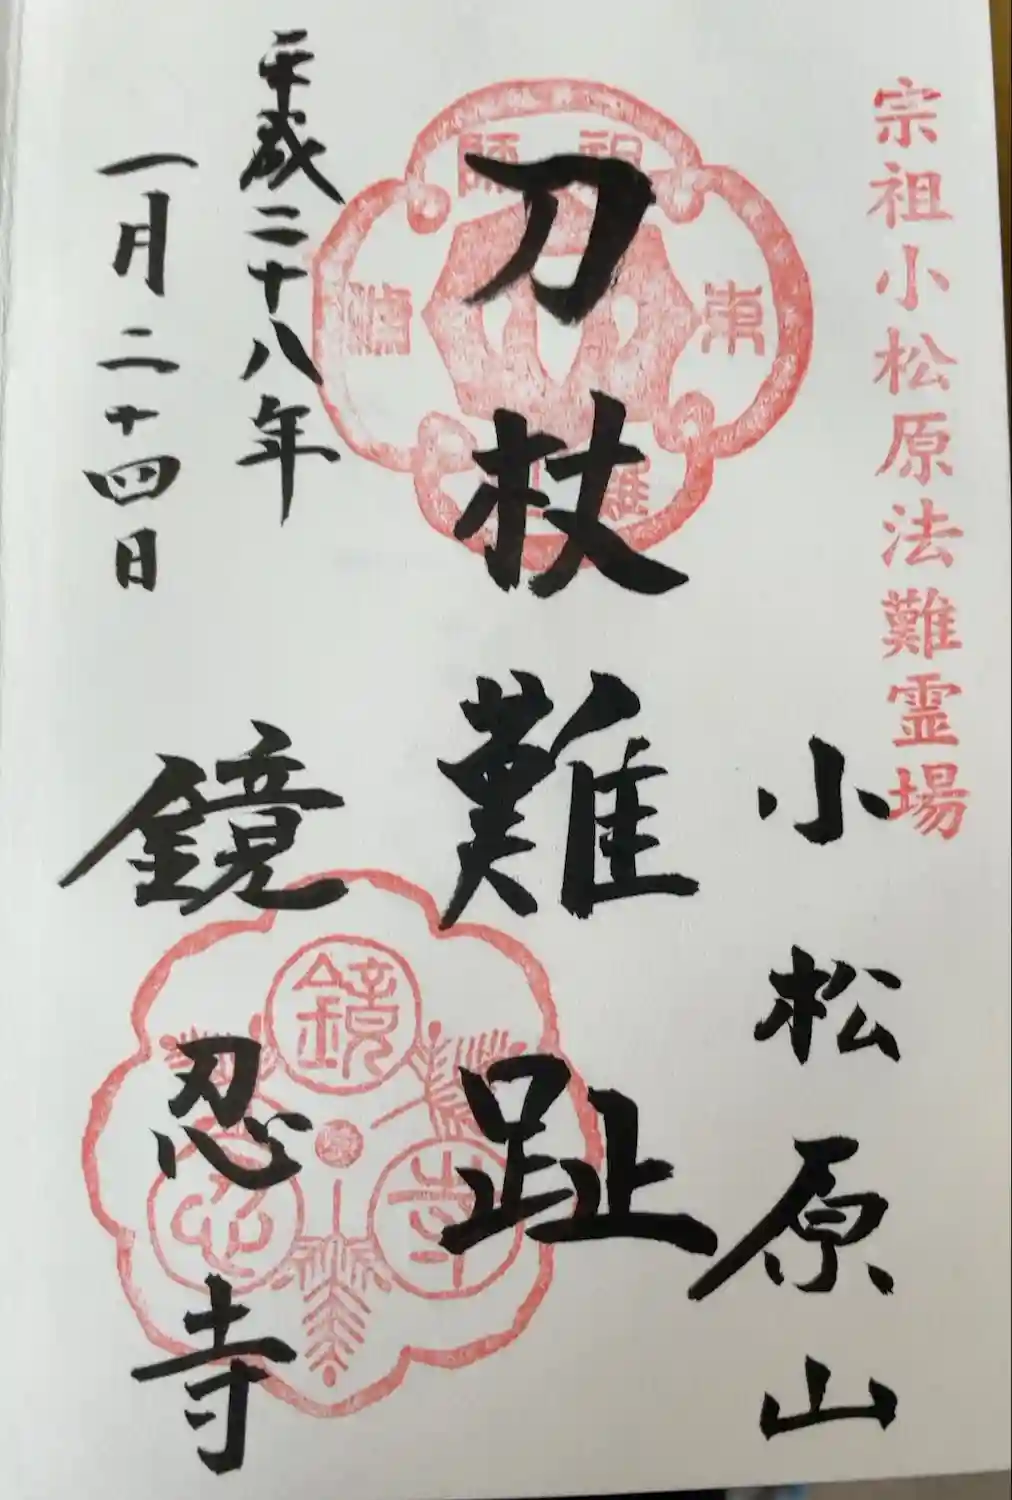 宗祖小松原法難霊場
小松原山
刀杖難趾
平成二十八年
一月二十四日
鏡忍寺
祖師
東
難
鏡
忍
寺